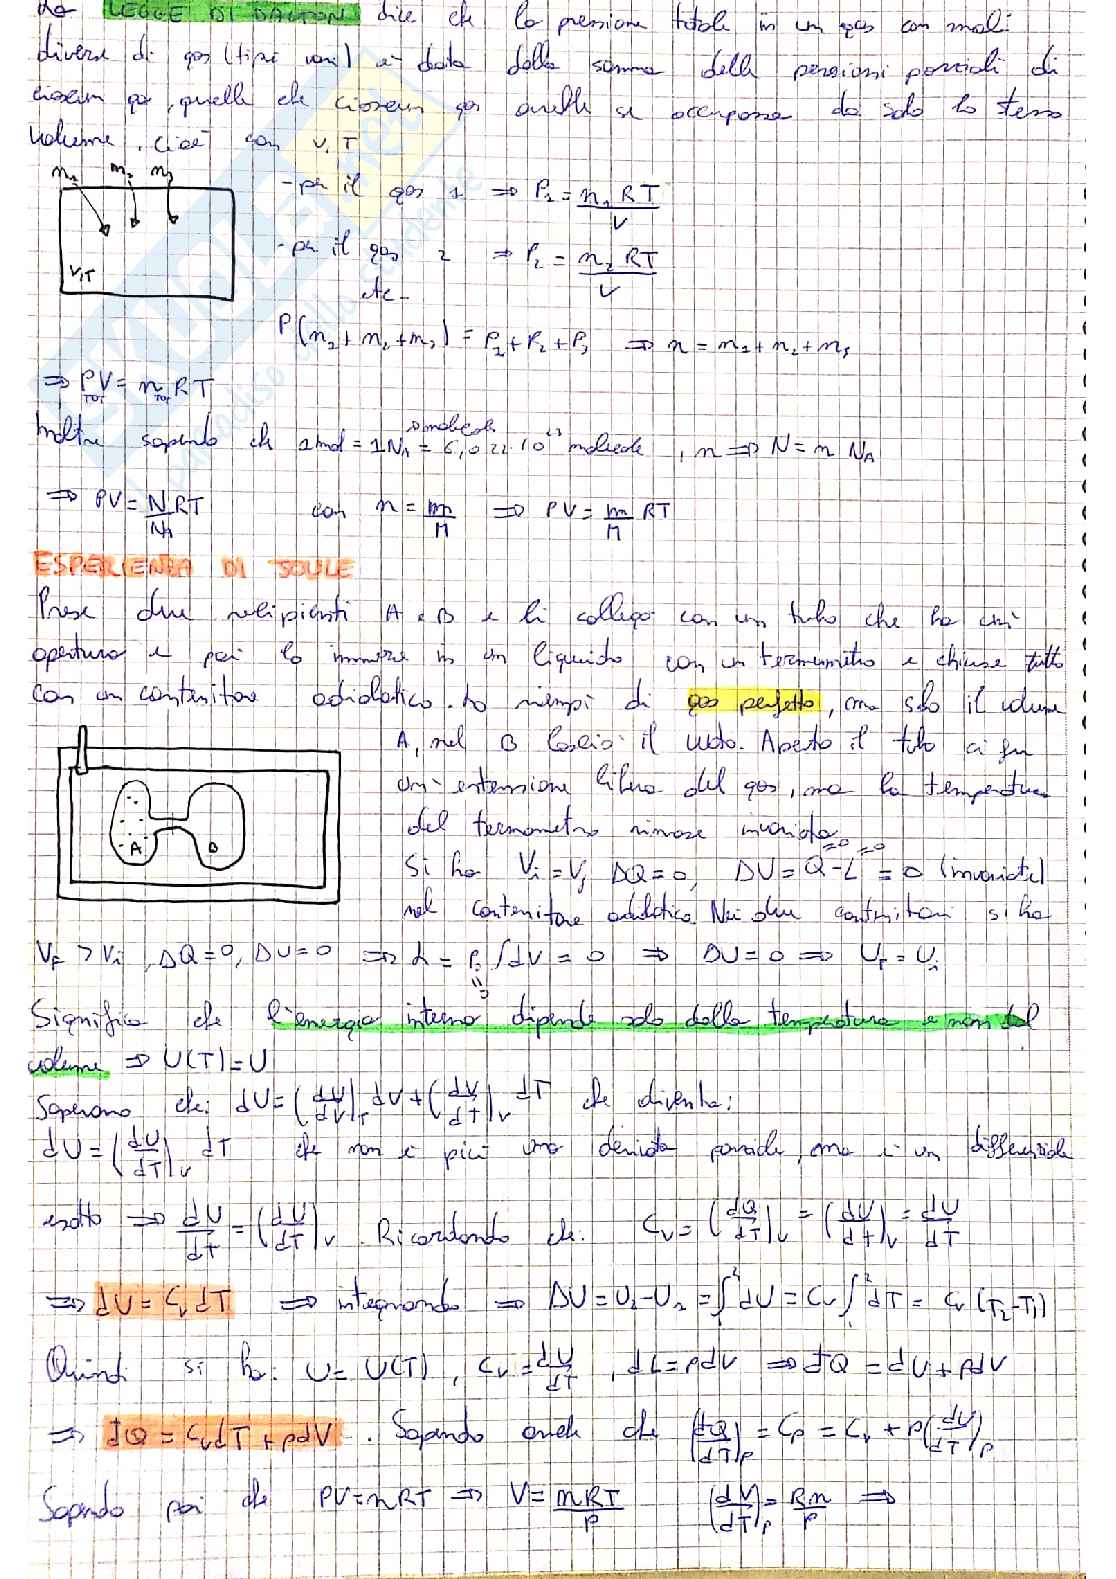 La LEGGE DI DALTON dice che la pressione totale in un gas con moli
diverse di gas (tipi vari) è data dalla somma delle pressioni parziali di
ciascun gas, quelle che ciascun gas avrebbe se occupasse da solo lo stesso
volume, cioè con V, T
n₁ n₂ n₃
V,T
- per il gas 1 ⇒ P₁ = n₁RT/V
- per il gas 2 ⇒ P₂ = n₂RT/V
etc-
P(n₁+n₂+n₃) = P₁+P₂+P₃ ⇒ n = n₁+n₂+n₃
⇒ P_TOT V = n_TOT RT
Inoltre sapendo che 1mol = 1N_A = 6,022·10²³ molecole, n ⇒ N = n N_A
⇒ PV = N/N_A RT con n = m/M ⇒ PV = m/M RT
ESPERIENZA DI JOULE
Prese due recipienti A e B e li collegò con un tubo che ha un'
apertura e poi lo immerse in un liquido con un termometro e chiuse tutto
con un contenitore adiabatico. Lo riempì di gas perfetto, ma solo il volume
A, nel B lasciò il vuoto. Aperto il tubo ci fu
un'estensione libera del gas, ma la temperatura
del termometro rimase invariata.
A B
Si ha Vᵢ = V_f, ΔQ=0, ΔU = Q - L = 0 (invariate)
=0 =0
nel contenitore adiabatico. Nei due contenitori si ha
V_F > Vᵢ, ΔQ=0, ΔU=0 ⇒ L = Pᵢ ∫dV = 0 ⇒ ΔU=0 ⇒ U_f = Uᵢ
Significa che l'energia interna dipende solo dalla temperatura e non dal
volume ⇒ U(T)=U
Sapevamo che: dU = (dU/dV)_T dV + (dU/dT)_V dT che diventa:
dU = (dU/dT)_V dT che non è più una derivata parziale, ma è un differenziale
esatto ⇒ dU/dT = (dU/dT)_V. Ricordando che: C_V = (dQ/dT)_V = (dU/dT)_V = dU/dT
⇒ dU = C_V dT ⇒ integrando ⇒ ΔU = U₂-U₁ = ∫₁² dU = C_V ∫₁² dT = C_V (T₂-T₁)
Quindi si ha: U = U(T), C_V = dU/dT, dL = pdV ⇒ đQ = dU + pdV
⇒ đQ = C_V dT + pdV. Sapendo anche che (đQ/dT)_P = C_P = C_V + P(dV/dT)_P
Sapendo poi che PV = nRT ⇒ V = nRT/P (dV/dT)_P = Rn/P ⇒